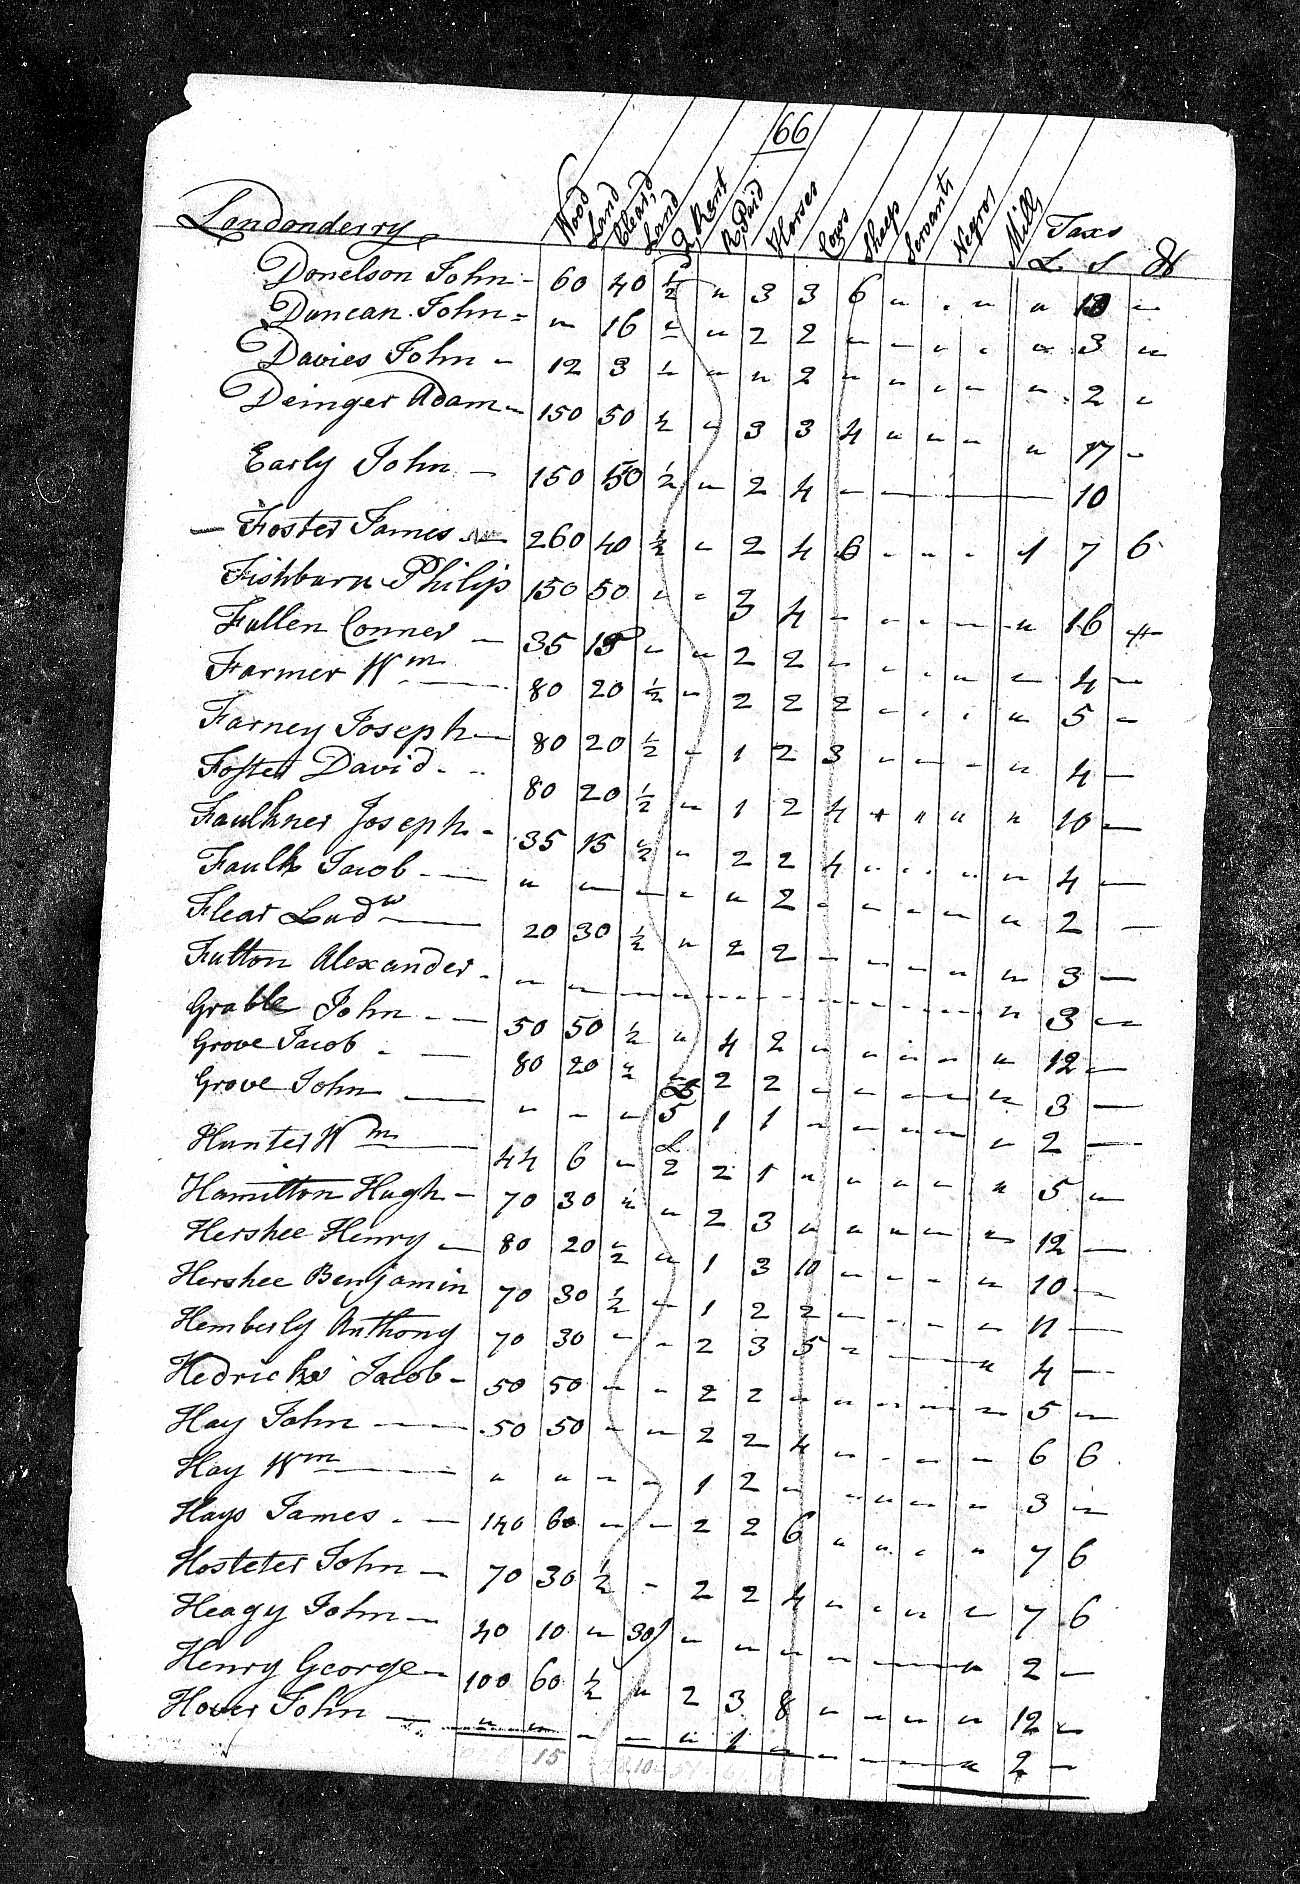 66
Londonderry Wood Land Clear'd Land Q Rent R Paid Horses Cows Sheep Servants Negros Mills Taxs
L. S D
Donelson John - 60 40 ½ " 3 3 6 " . " " 10 -
Duncan John - " 16 - " 2 2 - - " - " 3 "
Davies John - 12 3 ½ " " 2 " " " - " 2 -
Deinger Adam - 150 50 ½ " 3 3 4 " " - " 17 -
Early John - 150 50 ½ " 2 4 - - 10
- Foster James - 260 40 ½ - 2 4 6 - " - 1 7 6
Fishburn Philip 150 50 - - 3 4 - - - - " 16 -
Fullen Conner - 35 15 - " 2 2 - - - " - 4 -
Farmer Wm - 80 20 ½ " 2 2 2 - - - " 5 -
Farney Joseph - 80 20 ½ - 1 2 3 - - - " 4 -
Foster David - 80 20 ½ " 1 2 4 + " " " 10 -
Faulkner Joseph - 35 15 ½ " 2 2 4 " - - " 4 -
Faulk Jacob - " - - - " 2 - - - - " 2 -
Flear Ludw - 20 30 ½ " 2 2 - - - " " 3 -
Fulton Alexander - - - - - - - - - - - " 3 -
Grable John - 50 50 ½ " 4 2 " " " - " 12 -
Grove Jacob - 80 20 ½ " 2 2 - - - - " 3 -
Grove John - " - - L 5 1 1 - - - - " 2 -
Hunter Wm - 44 6 - L 2 2 1 " " - - " 5 -
Hamilton Hugh - 70 30 " " 2 3 " " " - - 12 -
Hershee Henry - 80 20 ½ " 1 3 10 - - - " 10 -
Hershee Benjamin 70 30 ½ - 1 2 2 - - - - 11 -
Hemberly Anthony 70 30 - - 2 3 5 - - - " 4 -
Hedricks Jacob - 50 50 - - 2 2 " " - - - 5 -
Hay John - 50 50 - - 2 2 4 - - - - 6 6
Hay Wm - " " - - 1 2 - - " - " 3 -
Hays James - 140 60 - - 2 2 6 " " - " 7 6
Hosteter John - 70 30 ½ - 2 2 4 - - - - 7 6
Heagy John - 40 10 - 30/ - " - - - - " 2 -
Henry George - 100 60 ½ " 2 3 8 - - - " 12 -
Hover John - " " - - " 1 - - - - " 2 -
15